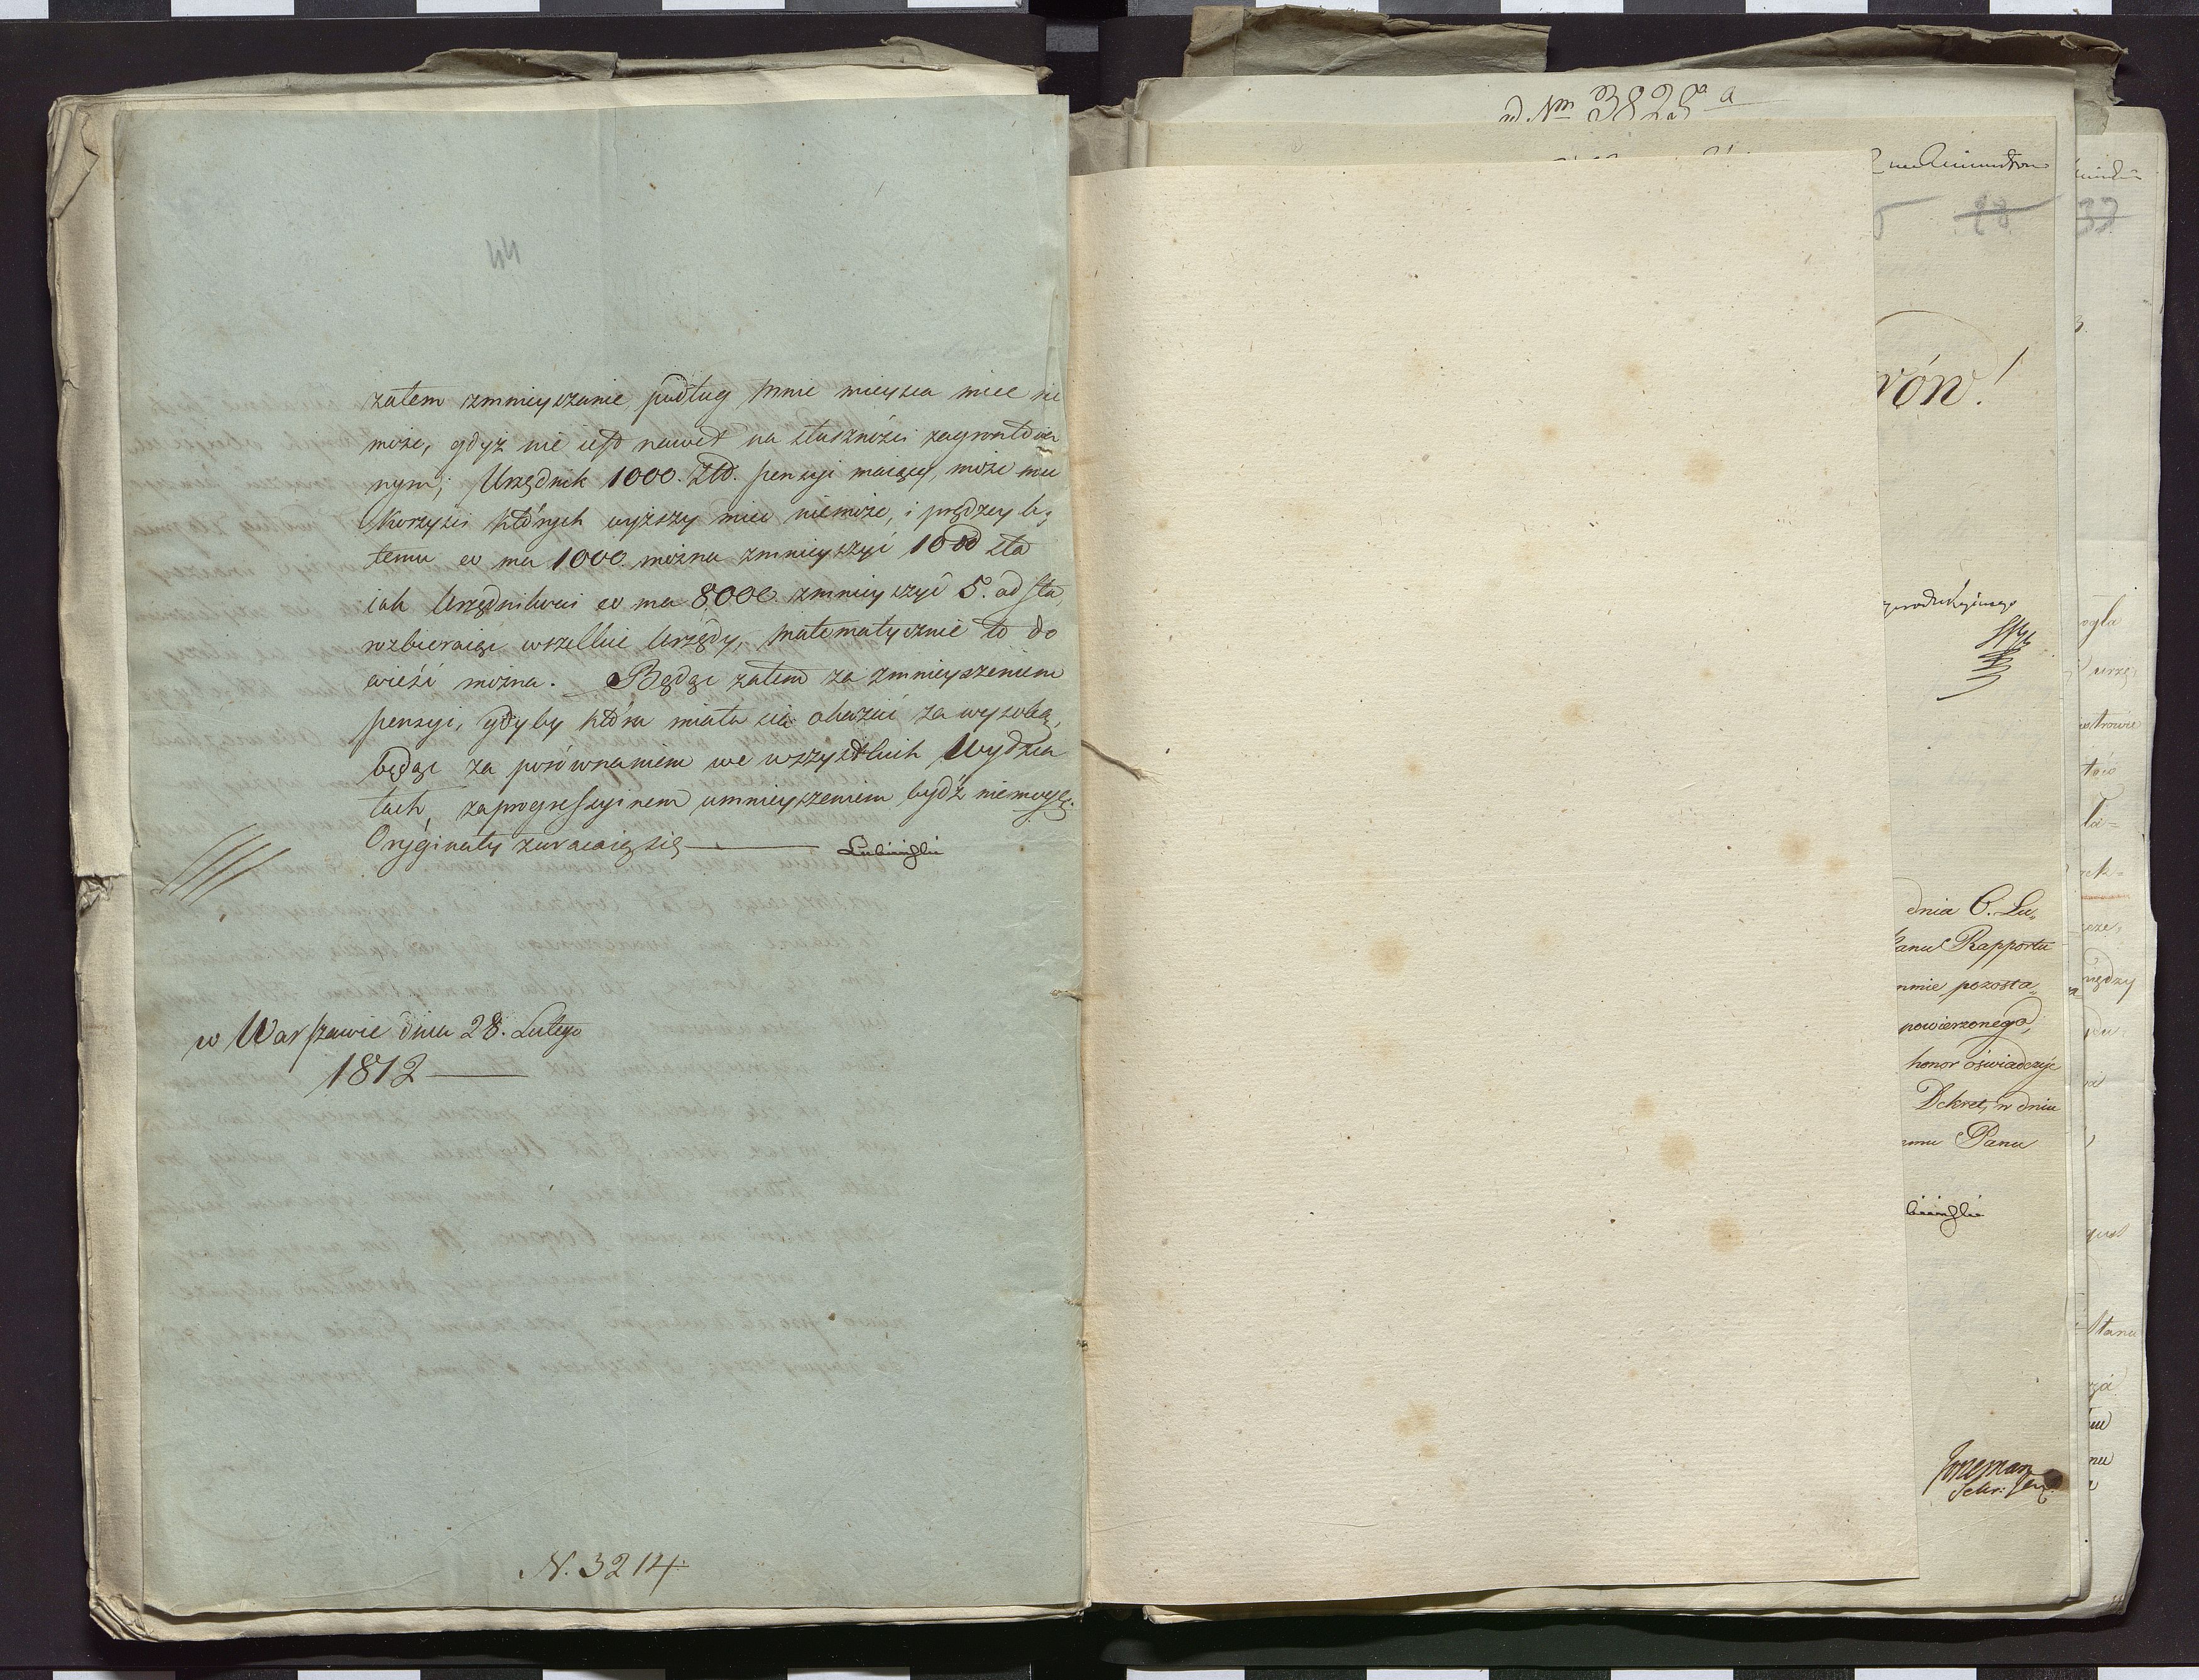 44
zatem zmnieyszanie podług mnie mieysca miec nie
może, gdyż nie iest nawet na słusznośći zagruntowa
nym; Urzędnik 1000. Złd. pensyi maiący, może mie
korzyśći których wyższy miec niemoże, i prędzey by
temu co ma 1000. można zmnieyszyć 10 od sta
iak Urzędnikowi co ma 8000. zmnieyszyć 5. od sta,
rozbieraiąc wszelkie Urzędy, matematycznie to do
wieść można. Będąc zatem za zmnieyszeniem
pensyi, gdyby która miała się okazać za wysoką,
będąc za porównaniem we wszystkich Wydzia
łach, za progressyinem umnieyszeniem bydź niemogę.
Oryginały zwracaią się — Lubieński
w Warszawie dnia 28. Lutego
1812 —
N. 3214
ad Nm 3825 a
18
37
rów!
dnia 6. Lu„
Panu Rapportu
mnie pozosta„
powierzonego,
honor oświadczyć
Dekret, w dniu
emu Panu
bieński
ogła
urzę
strowie
ła=
między
Stanu